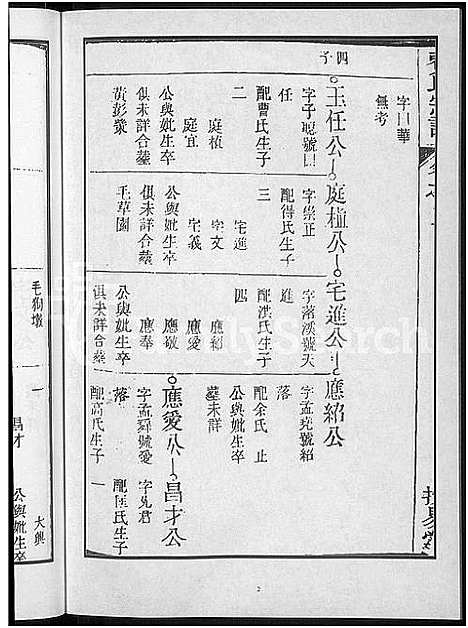 四子
字曰華
無考
玉任公
庭植公
宅進公
應紹公
任
配曹氏生子
二
庭植
庭宜
公與妣生卒
俱未詳合墓
黃彭漿
字崇正
配得氏生子
三
宅進
宅文
宅義
公與妣生卒
俱未詳合墓
毛草園
字落溪號天
進
配洪氏生子
四
應紹
應愛
應敬
應奉
公與妣生卒
俱未詳合墓
毛狗墩
字孟堯號紹
落
配余氏 止
公與妣生卒
墓未詳
應愛公
昌才公
字孟舜號愛
落
配高氏生子
一
昌才
公與妣生卒
字君
配匡氏生子
一
大興
公與妣生卒
FamilySearch
2